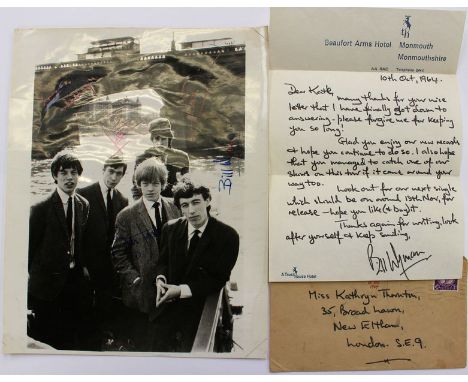 Beaufort Arms Hotel Monmouth
Monmouthshire
10th Oct, 1964.
Dear Kathy,
many thanks for your nice
letter that I have finally got down to
answering - please forgive me for keeping
you so long!
Glad you enjoy our new records
& hope you continue to do so. I also hope
that you managed to catch one of our
shows on this tour if it came around your
way too.
Look out for our next single
which should be on around 13th Nov, for
release - hope you like (& buy) it.
Thanks again for writing, look
after yourself & keep smiling,
Bill Wyman
A Trust House Hotel
Bill
Miss Kathryn Thornton,
35, Broad Lawn,
New Eltham,
London. S.E.9.